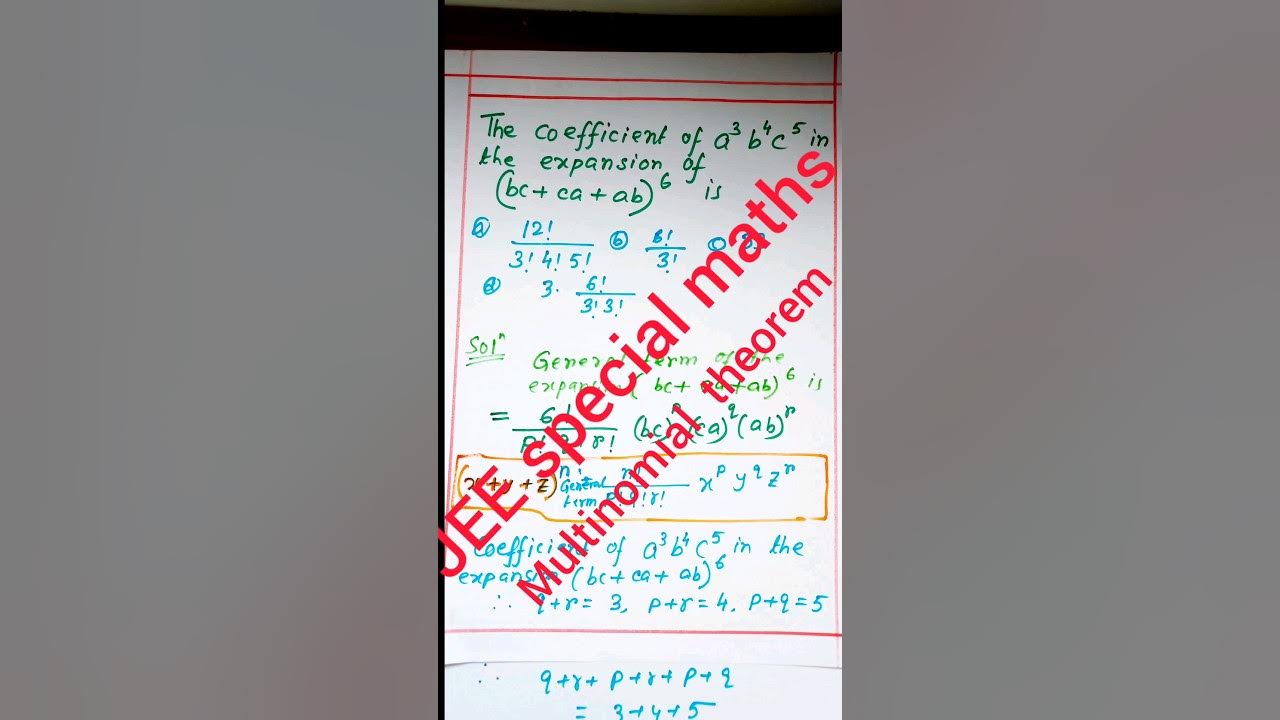 The coefficient of a³ b⁴ c⁵ in
the expansion of
(bc + ca + ab)⁶ is
ⓐ 12! / 3! 4! 5! ⓑ 6! / 3! ⓒ
ⓓ 3. 6! / 3! 3!
Solⁿ
General term of the
expansion (bc + ca + ab)⁶ is
= 6! / p! q! r! (bc)ᵖ (ca)^q (ab)ʳ
(x + y + z)ⁿ General term n! / p! q! r! xᵖ y^q zʳ
Coefficient of a³ b⁴ c⁵ in the
expansion (bc + ca + ab)⁶
∴ q+r = 3, p+r = 4, p+q = 5
∴ q+r+p+r+p+q
= 3+4+5
JEE special maths
Multinomial theorem